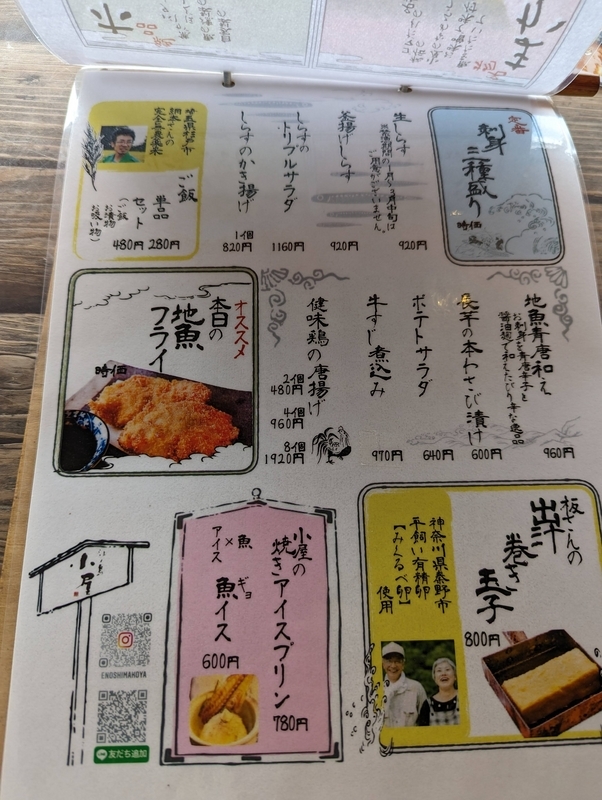 定番
刺身
三種盛り
時価
生しらす
920円
釜揚げしらす
920円
しらすの
トリプルサラダ
1160円
しらすのかき揚げ
1個
820円
ご飯
単品
280円
セット
(ご飯
お漬物
お吸い物)
480円
地魚青唐和え
お刺身を青唐辛子と
醤油麹で和えたピリ辛な逸品
960円
長芋の本わさび漬け
600円
ポテトサラダ
640円
牛すじ煮込み
970円
健味鶏の唐揚げ
2個
480円
4個
960円
8個
1920円
オススメ
本日の
地魚
フライ
時価
板さんの
出汁
巻き
玉子
800円
神奈川県秦野市
平飼い有精卵
【みくるべ卵】
使用
小屋の
焼きアイスプリン
780円
魚
×
アイス
ギョ
魚イス
600円
小屋
ENOSHIMAKOYA
LINE
友だち追加